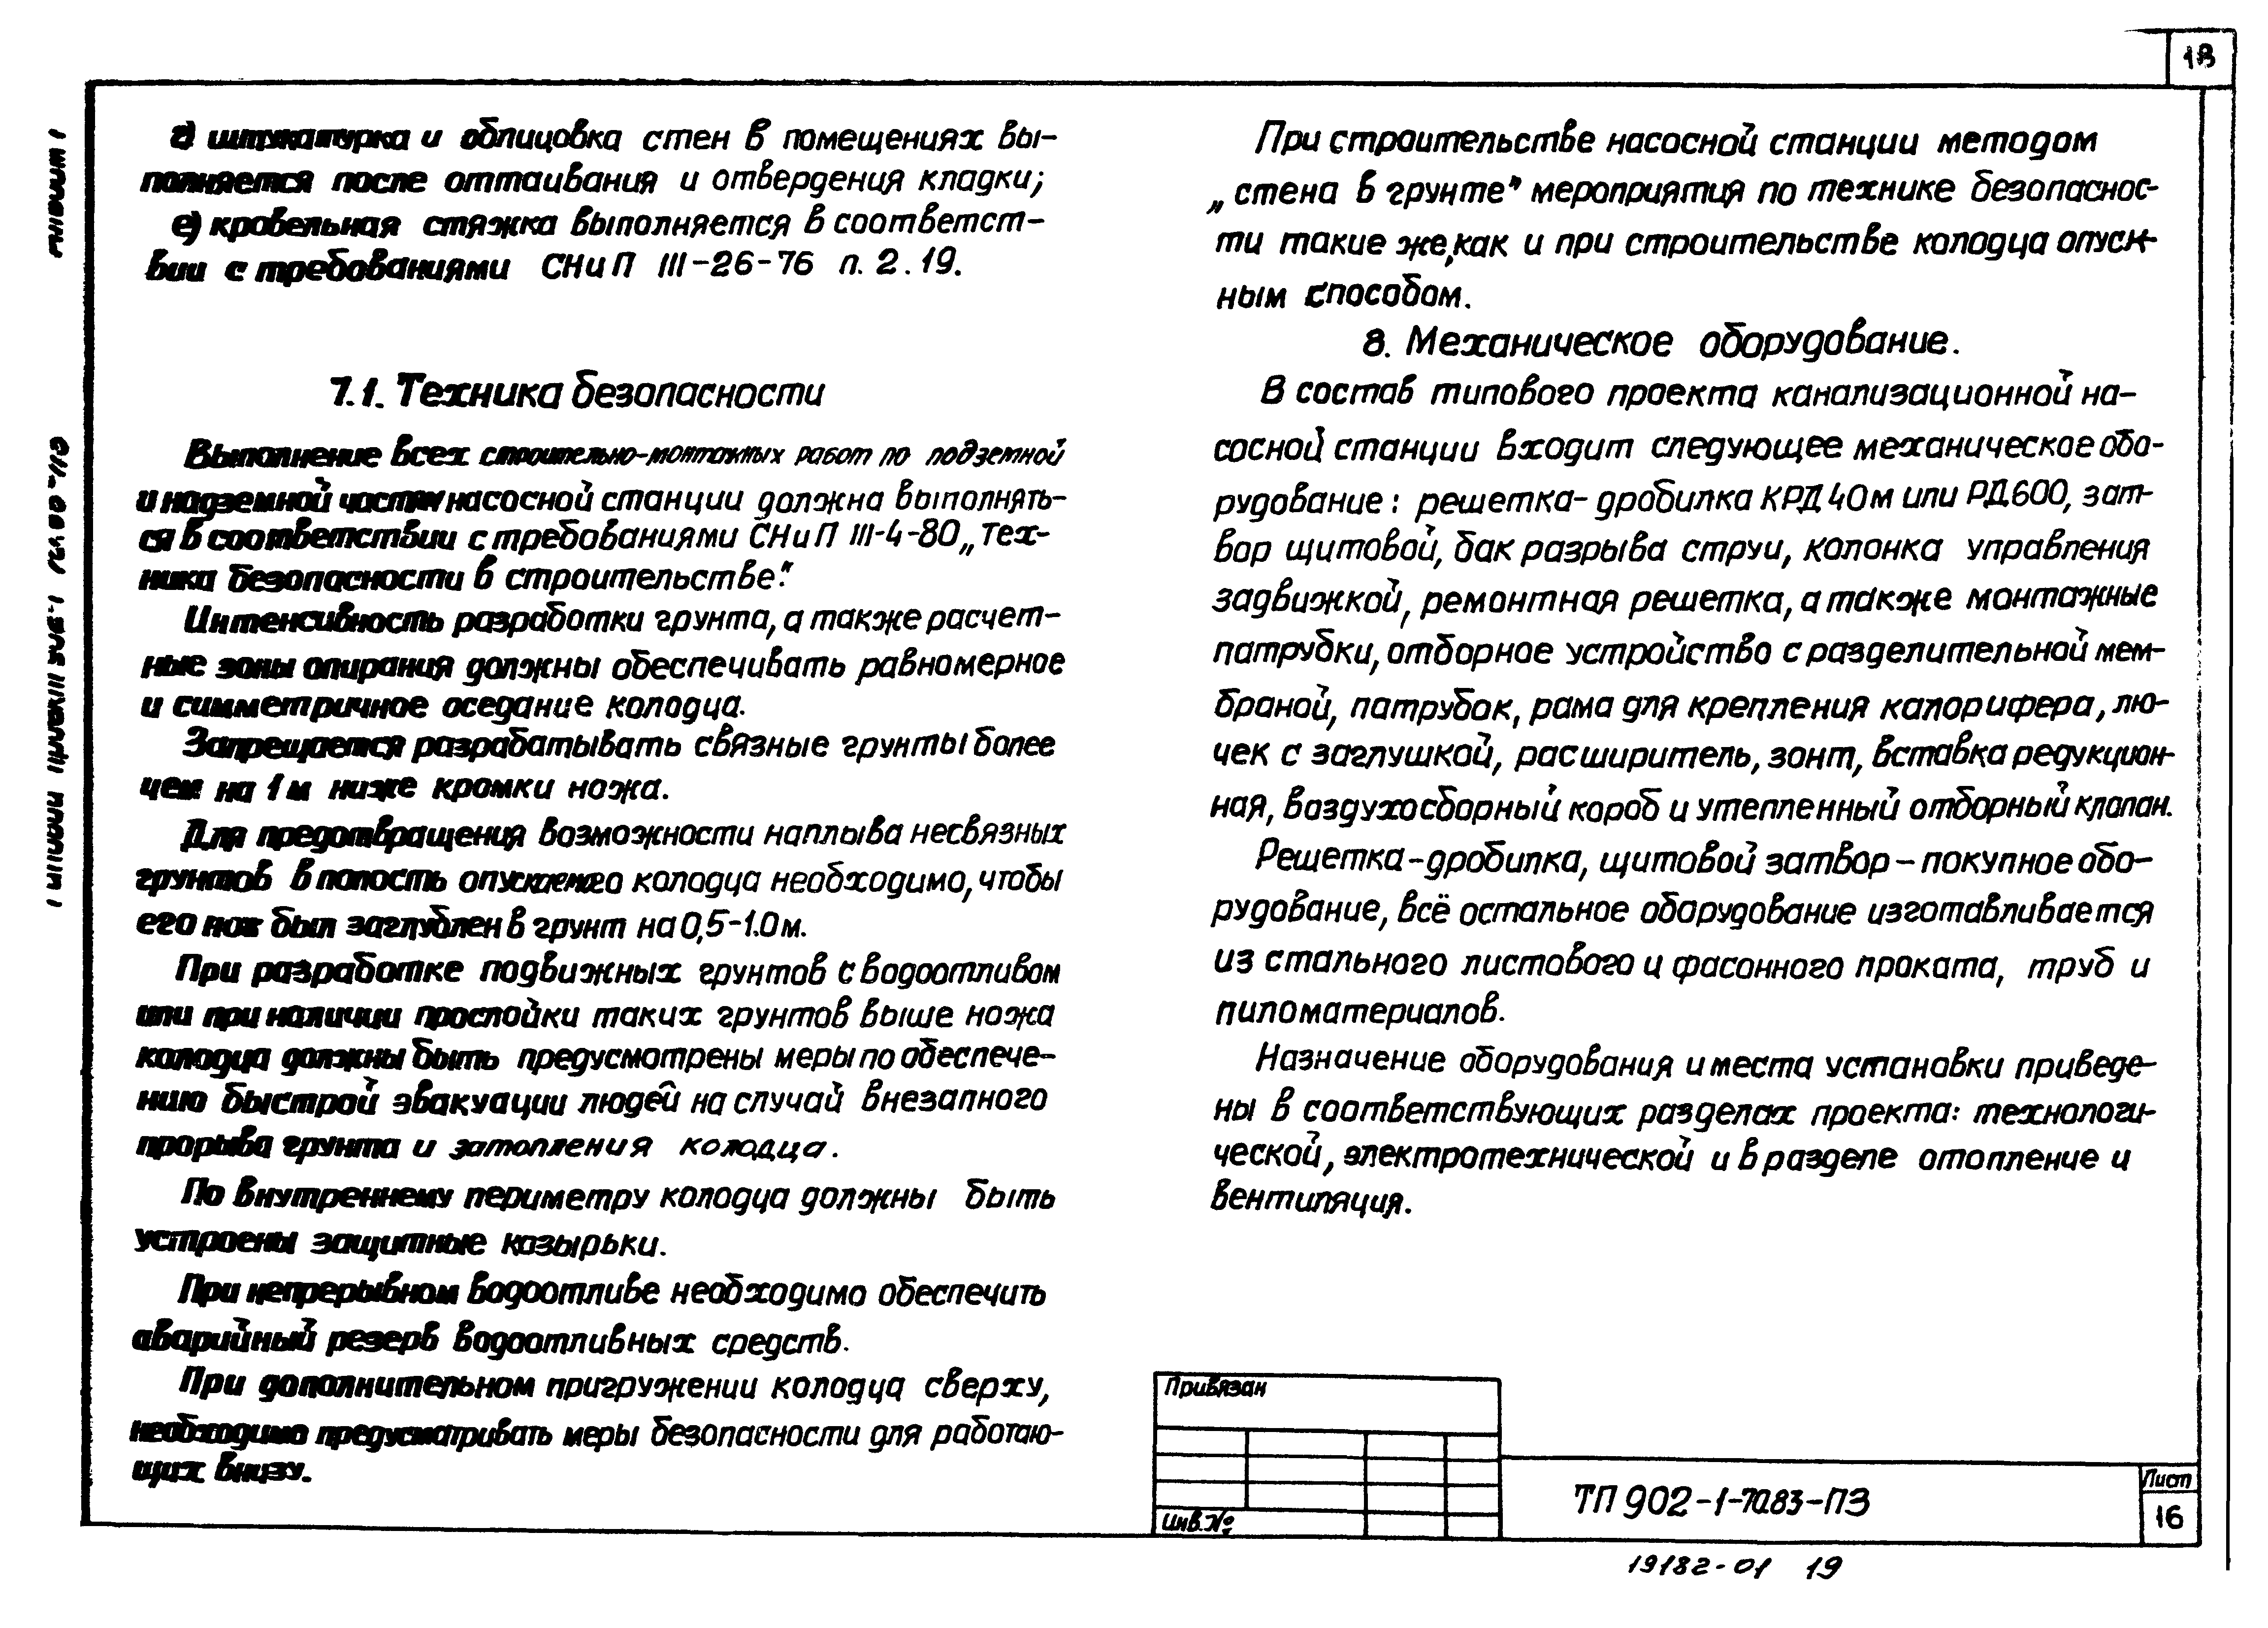 18
г) штукатурка и облицовка стен в помещениях вы-
полняется после оттаивания и отвердения кладки;
е) кровельная стяжка выполняется в соответст-
вии с требованиями СНиП III-26-76 п. 2.19.
7.1. Техника безопасности
Выполнение всех строительно-монтажных работ по подземной
и надземной частям насосной станции должна выполнять-
ся в соответствии с требованиями СНиП III-4-80 „Тех-
ника безопасности в строительстве".
Интенсивность разработки грунта, а также расчет-
ные зоны опирания должны обеспечивать равномерное
и симметричное оседание колодца.
Запрещается разрабатывать связные грунты более
чем на 1 м ниже кромки ножа.
Для предотвращения возможности наплыва несвязных
грунтов в полость опускаемого колодца необходимо, чтобы
его нож был заглублен в грунт на 0,5-1.0 м.
При разработке подвижных грунтов с водоотливом
или при наличии прослойки таких грунтов выше ножа
колодца должны быть предусмотрены меры по обеспече-
нию быстрой эвакуации людей на случай внезапного
прорыва грунта и затопления колодца.
По внутреннему периметру колодца должны быть
устроены защитные козырьки.
При непрерывном водоотливе необходимо обеспечить
аварийный резерв водоотливных средств.
При дополнительном пригружении колодца сверху,
необходимо предусматривать меры безопасности для работаю-
щих внизу.
При строительстве насосной станции методом
„стена в грунте" мероприятия по технике безопаснос-
ти такие же, как и при строительстве колодца опуск-
ным способом.
8. Механическое оборудование.
В состав типового проекта канализационной на-
сосной станции входит следующее механическое обо-
рудование: решетка-дробилка КРД 40м или РД600, зат-
вор щитовой, бак разрыва струи, колонка управления
задвижкой, ремонтная решетка, а также монтажные
патрубки, отборное устройство с разделительной мем-
браной, патрубок, рама для крепления калорифера, лю-
чек с заглушкой, расширитель, зонт, вставка редукцион-
ная, воздухосборный короб и утепленный отборный клапан.
Решетка-дробилка, щитовой затвор - покупное обо-
рудование, всё остальное оборудование изготавливается
из стального листового и фасонного проката, труб и
пиломатериалов.
Назначение оборудования и места установки приведе-
ны в соответствующих разделах проекта: технологи-
ческой, электротехнической и в разделе отопление и
вентиляция.
Привязан
Инв.№
ТП 902-1-70.83-ПЗ
Лист
16
19182-01 19